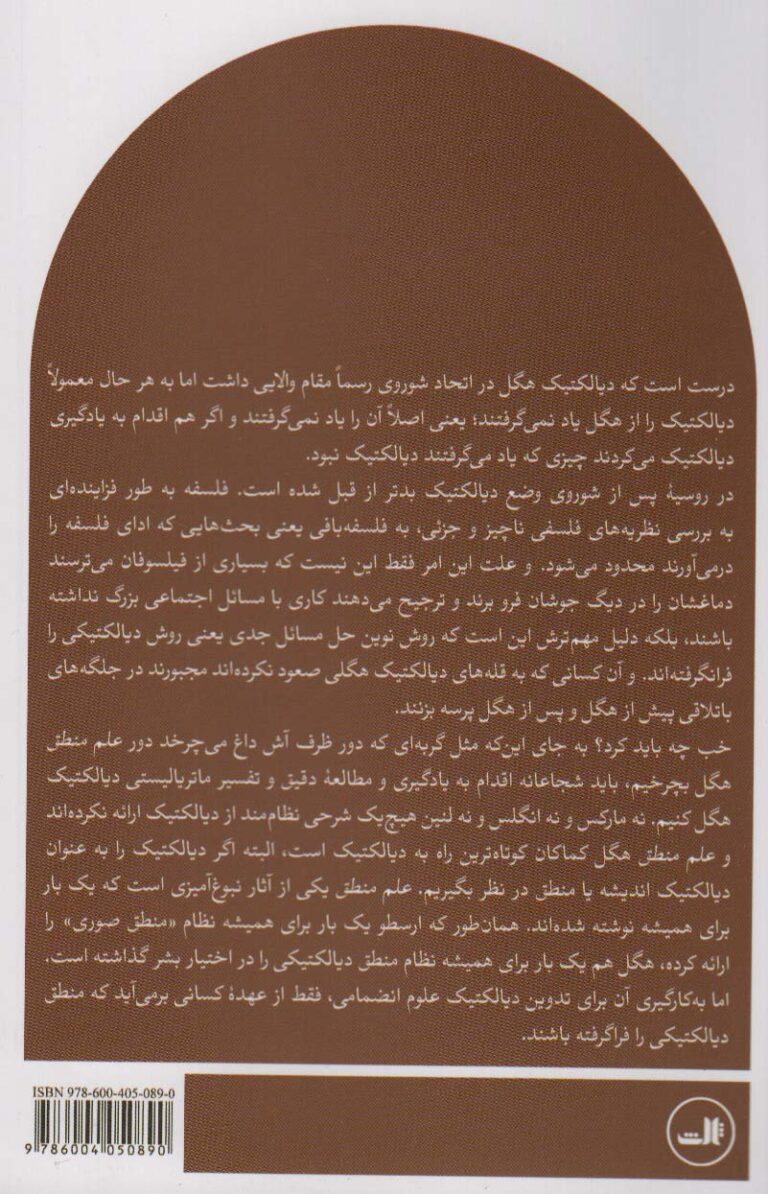 درست است که دیالکتیک هگل در اتحاد شوروی رسماً مقام والایی داشت اما به هر حال معمولاً
دیالکتیک را از هگل یاد نمی‌گرفتند؛ یعنی اصلاً آن را یاد نمی‌گرفتند و اگر هم اقدام به یادگیری
دیالکتیک می‌کردند چیزی که یاد می‌گرفتند دیالکتیک نبود.
در روسیهٔ پس از شوروی وضع دیالکتیک بدتر از قبل شده است. فلسفه به طور فزاینده‌ای
به بررسی نظریه‌های فلسفی ناچیز و جزئی، به فلسفه‌بافی یعنی بحث‌هایی که ادای فلسفه را
درمی‌آورند محدود می‌شود. و علت این امر فقط این نیست که بسیاری از فیلسوفان می‌ترسند
دماغشان را در دیگ جوشان فرو برند و ترجیح می‌دهند کاری با مسائل اجتماعی بزرگ نداشته
باشند، بلکه دلیل مهم‌ترش این است که روش نوین حل مسائل جدی یعنی روش دیالکتیکی را
فرانگرفته‌اند. و آن کسانی که به قله‌های دیالکتیک هگلی صعود نکرده‌اند مجبورند در جلگه‌های
باتلاقی پیش از هگل و پس از هگل پرسه بزنند.
خب چه باید کرد؟ به جای این‌که مثل گربه‌ای که دور ظرف آش داغ می‌چرخد دور علم منطق
هگل بچرخیم، باید شجاعانه اقدام به یادگیری و مطالعهٔ دقیق و تفسیر ماتریالیستی دیالکتیک
هگل کنیم. نه مارکس و نه انگلس و نه لنین هیچ‌یک شرحی نظام‌مند از دیالکتیک ارائه نکرده‌اند
و علم منطق هگل کماکان کوتاه‌ترین راه به دیالکتیک است، البته اگر دیالکتیک را به عنوان
دیالکتیک اندیشه یا منطق در نظر بگیریم. علم منطق یکی از آثار نبوغ‌آمیزی است که یک بار
برای همیشه نوشته شده‌اند. همان‌طور که ارسطو یک بار برای همیشه نظام «منطق صوری» را
ارائه کرده، هگل هم یک بار برای همیشه نظام منطق دیالکتیکی را در اختیار بشر گذاشته است.
اما به‌کارگیری آن برای تدوین دیالکتیک علوم انضمامی، فقط از عهدهٔ کسانی برمی‌آید که منطق
دیالکتیکی را فراگرفته باشند.
ISBN 978-600-405-089-0
9 786004 050890
ثالث